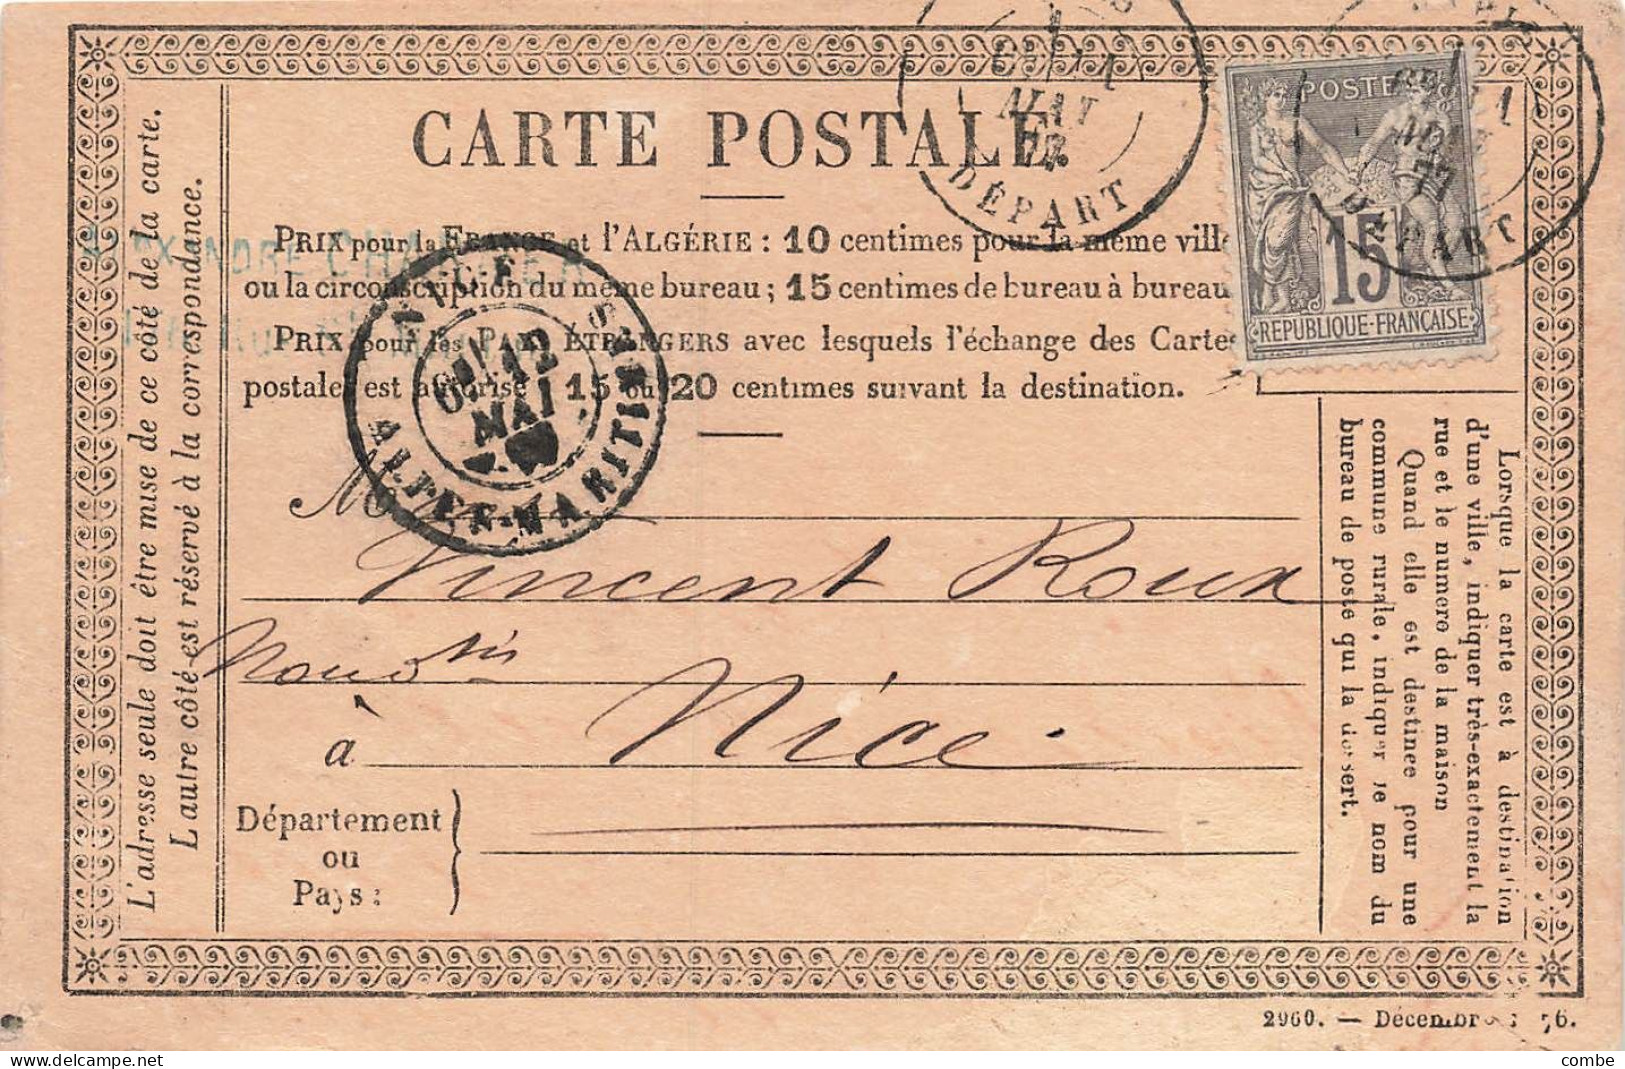 CARTE POSTALE
PRIX pour la FRANCE et l'ALGÉRIE : 10 centimes pour la même ville
ou la circonscription du même bureau ; 15 centimes de bureau à bureau
PRIX pour les PAYS ÉTRANGERS avec lesquels l'échange des Cartes
postales est autorisé : 15 ou 20 centimes suivant la destination.
MAI
77
DÉPART
POSTE
15
REPUBLIQUE-FRANÇAISE
DÉPART
NICE
12
MAI
ALPES-MARITIMES
CHA
L'adresse seule doit être mise de ce côté de la carte.
L'autre côté est réservé à la correspondance.
M
Vincent Roux
à Nice
Département
ou
Pays :
Lorsque la carte est à destination
d'une ville, indiquer très-exactement la
rue et le numero de la maison
Quand elle est destinee pour une
commune rurale, indiquer le nom du
bureau de poste qui la dessert.
2960. — Décembre 76.
combe